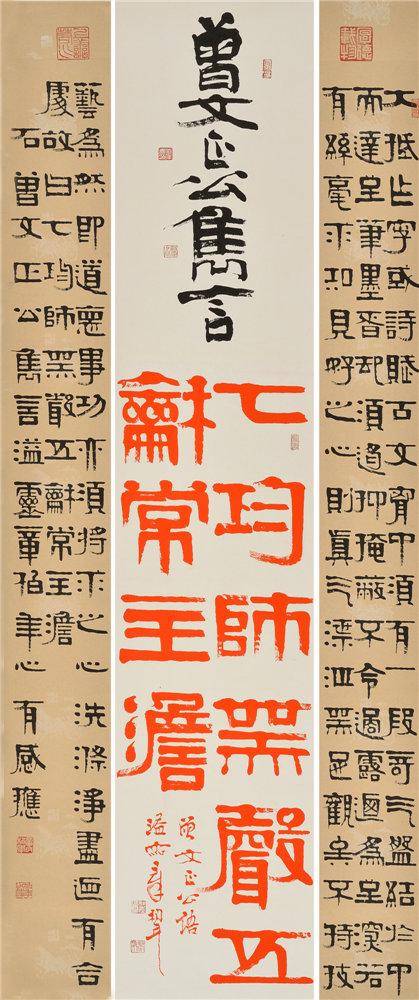 大抵作字或詩賦古文胷中須有一段奇气盤結於中
而達至筆墨者却須遏抑掩蔽不令過露迺為至深若
有絲毫求知見好之心則真气漂泄無足觀矣不特技
曾文正公雋言
七均師無聲五
龢常主澹
曾文正公語
藝為然即道悳事功亦須將求之心洗滌淨盡迺有合
處故曰七均師無聲五龢常主澹
右曾文正公雋言溢靈章柏年心有感應